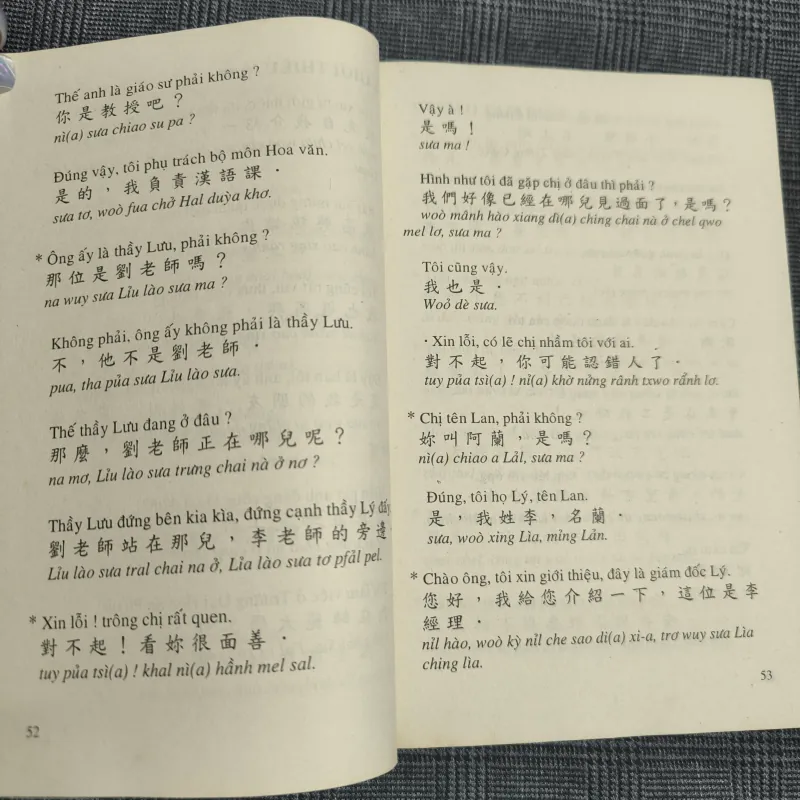 Thế anh là giáo sư phải không ?
你是教授吧？
nì(a) sưa chiao su pa ?
Đúng vậy, tôi phụ trách bộ môn Hoa văn.
是的，我負責漢語課．
sưa tơ, woò fua chở Hal duỳa khơ.
* Ông ấy là thầy Lưu, phải không ?
那位是劉老師嗎？
na wuy sưa Lỉu lào sưa ma ?
Không phải, ông ấy không phải là thầy Lưu.
不，他不是劉老師．
pua, tha pủa sưa Lỉu lào sưa.
Thế thầy Lưu đang ở đâu ?
那麼，劉老師正在哪兒呢？
na mơ, Lỉu lào sưa trưng chai nà ở nơ ?
Thầy Lưu đứng bên kia kìa, đứng cạnh thầy Lý đấy
劉老師站在那兒，李老師的旁邊
Lỉu lào sưa tral chai na ở, Lỉa lào sưa tơ pfảl pel.
* Xin lỗi ! trông chị rất quen.
對不起！看妳很面善．
tuy pủa tsì(a) ! khal nì(a) hầnh mel sal.
52
Vậy à !
是嗎！
sưa ma !
Hình như tôi đã gặp chị ở đâu thì phải ?
我們好像已經在哪兒見過面了，是嗎？
woò mânh hào xiang dì(a) ching chai nà ở chel qwo
mel lơ, sưa ma ?
Tôi cũng vậy.
我也是．
Woỏ dè sưa.
· Xin lỗi, có lẽ chị nhầm tôi với ai.
對不起，你可能認錯人了．
tuy pủa tsì(a) ! nỉ(a) khờ nửng rânh txwo rẩnh lơ.
* Chị tên Lan, phải không ?
妳叫阿蘭，是嗎？
nì(a) chiao a Lảl, sưa ma ?
Đúng, tôi họ Lý, tên Lan.
是，我姓李，名蘭．
sưa, woò xing Lìa, mỉng Lản.
* Chào ông, tôi xin giới thiệu, đây là giám đốc Lý.
您好，我給您介紹一下，這位是李
經理．
nỉl hào, woò kỳ nỉl che sao di(a) xi-a, trơ wuy sưa Lìa
ching lìa.
53